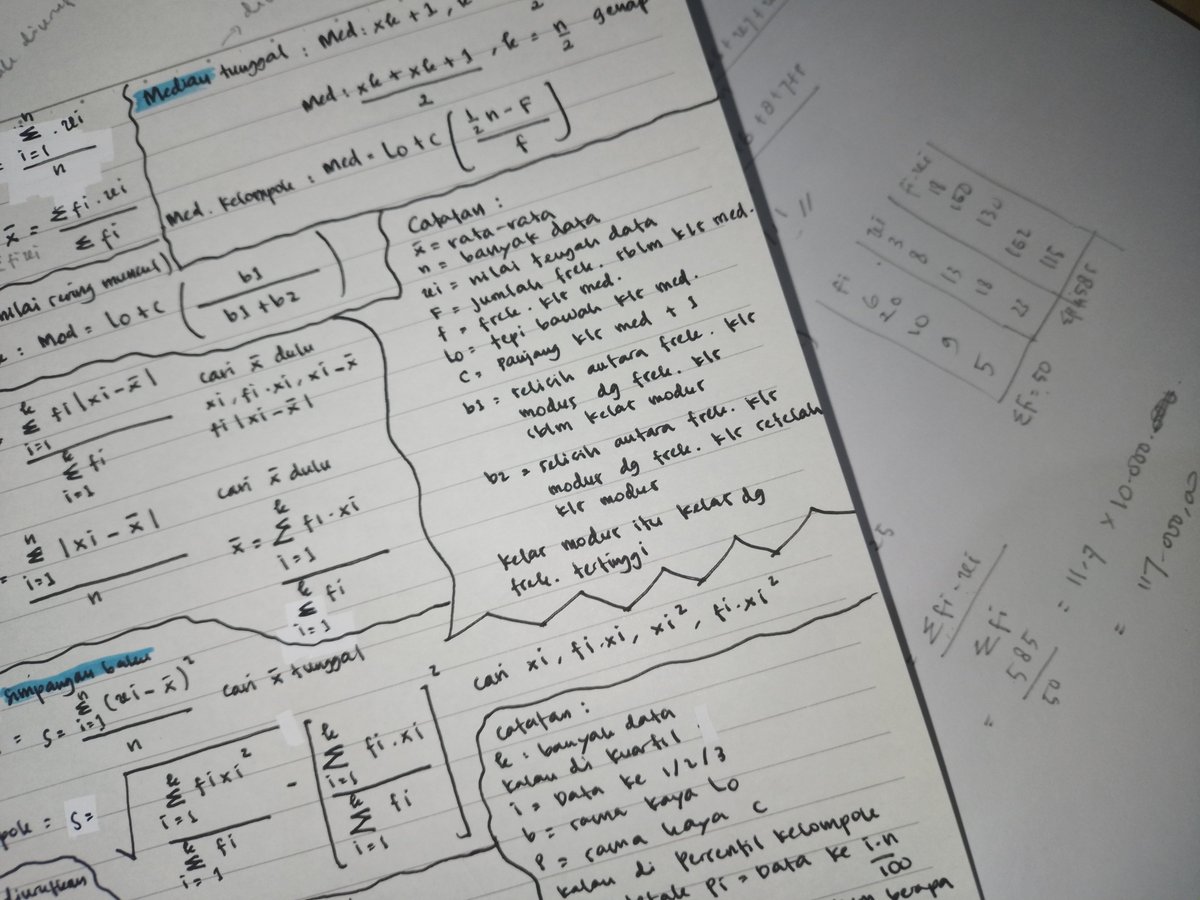 Median tunggal : Med : xk + 1, k
2
Med : xk + xk + 1 / 2 , k = n/2 genap
Med. kelompok : Med = Lo + C ( ½ n - F / f )
n Σ i=1 . xi / n
x̄ = Σ fi . xi / Σ fi
nilai sering muncul)
: Mod = Lo + C ( b1 / b1 + b2 )
Catatan :
x̄ = rata-rata
n = banyak data
xi = nilai tengah data
F = jumlah frek. sblm klr med.
f = frek. klr med.
Lo = tepi bawah klr med.
C = panjang klr med + 1
b1 = selisih antara frek. klr
modus dg frek. klr
sblm kelas modus
b2 = selisih antara frek. klr
modus dg frek. klr setelah
klr modus
kelas modus itu kelas dg
frek. tertinggi
k Σ i=1 fi |xi - x̄| / k Σ i=1 fi
cari x̄ dulu
xi, fi . xi, xi - x̄
fi |xi - x̄|
= n Σ i=1 |xi - x̄| / n
cari x̄ dulu
x̄ = k Σ i=1 fi . xi / k Σ i=1 fi
Simpangan baku
= S = n Σ i=1 (xi - x̄)² / n
cari x̄ tunggal
cari xi, fi . xi, xi², fi . xi²
= S = √ k Σ i=1 fi xi² / k Σ i=1 fi - [ k Σ i=1 fi . xi / k Σ i=1 fi ]²
diurutkan
Catatan :
k : banyak data
kalau di kuartil
i = Data ke 1/2/3
b = sama kaya Lo
P = sama kaya C
kalau di persentil kelompok
Pi = Data ke i.n / 100
berapa
fi xi fi.xi
6 3 18
20 8 160
10 13 130
9 18 162
5 23 115
Σfi = 50
585
Σ fi . xi / Σ fi
= 585 / 50
= 11.7 × 10.000.
= 117.000,00